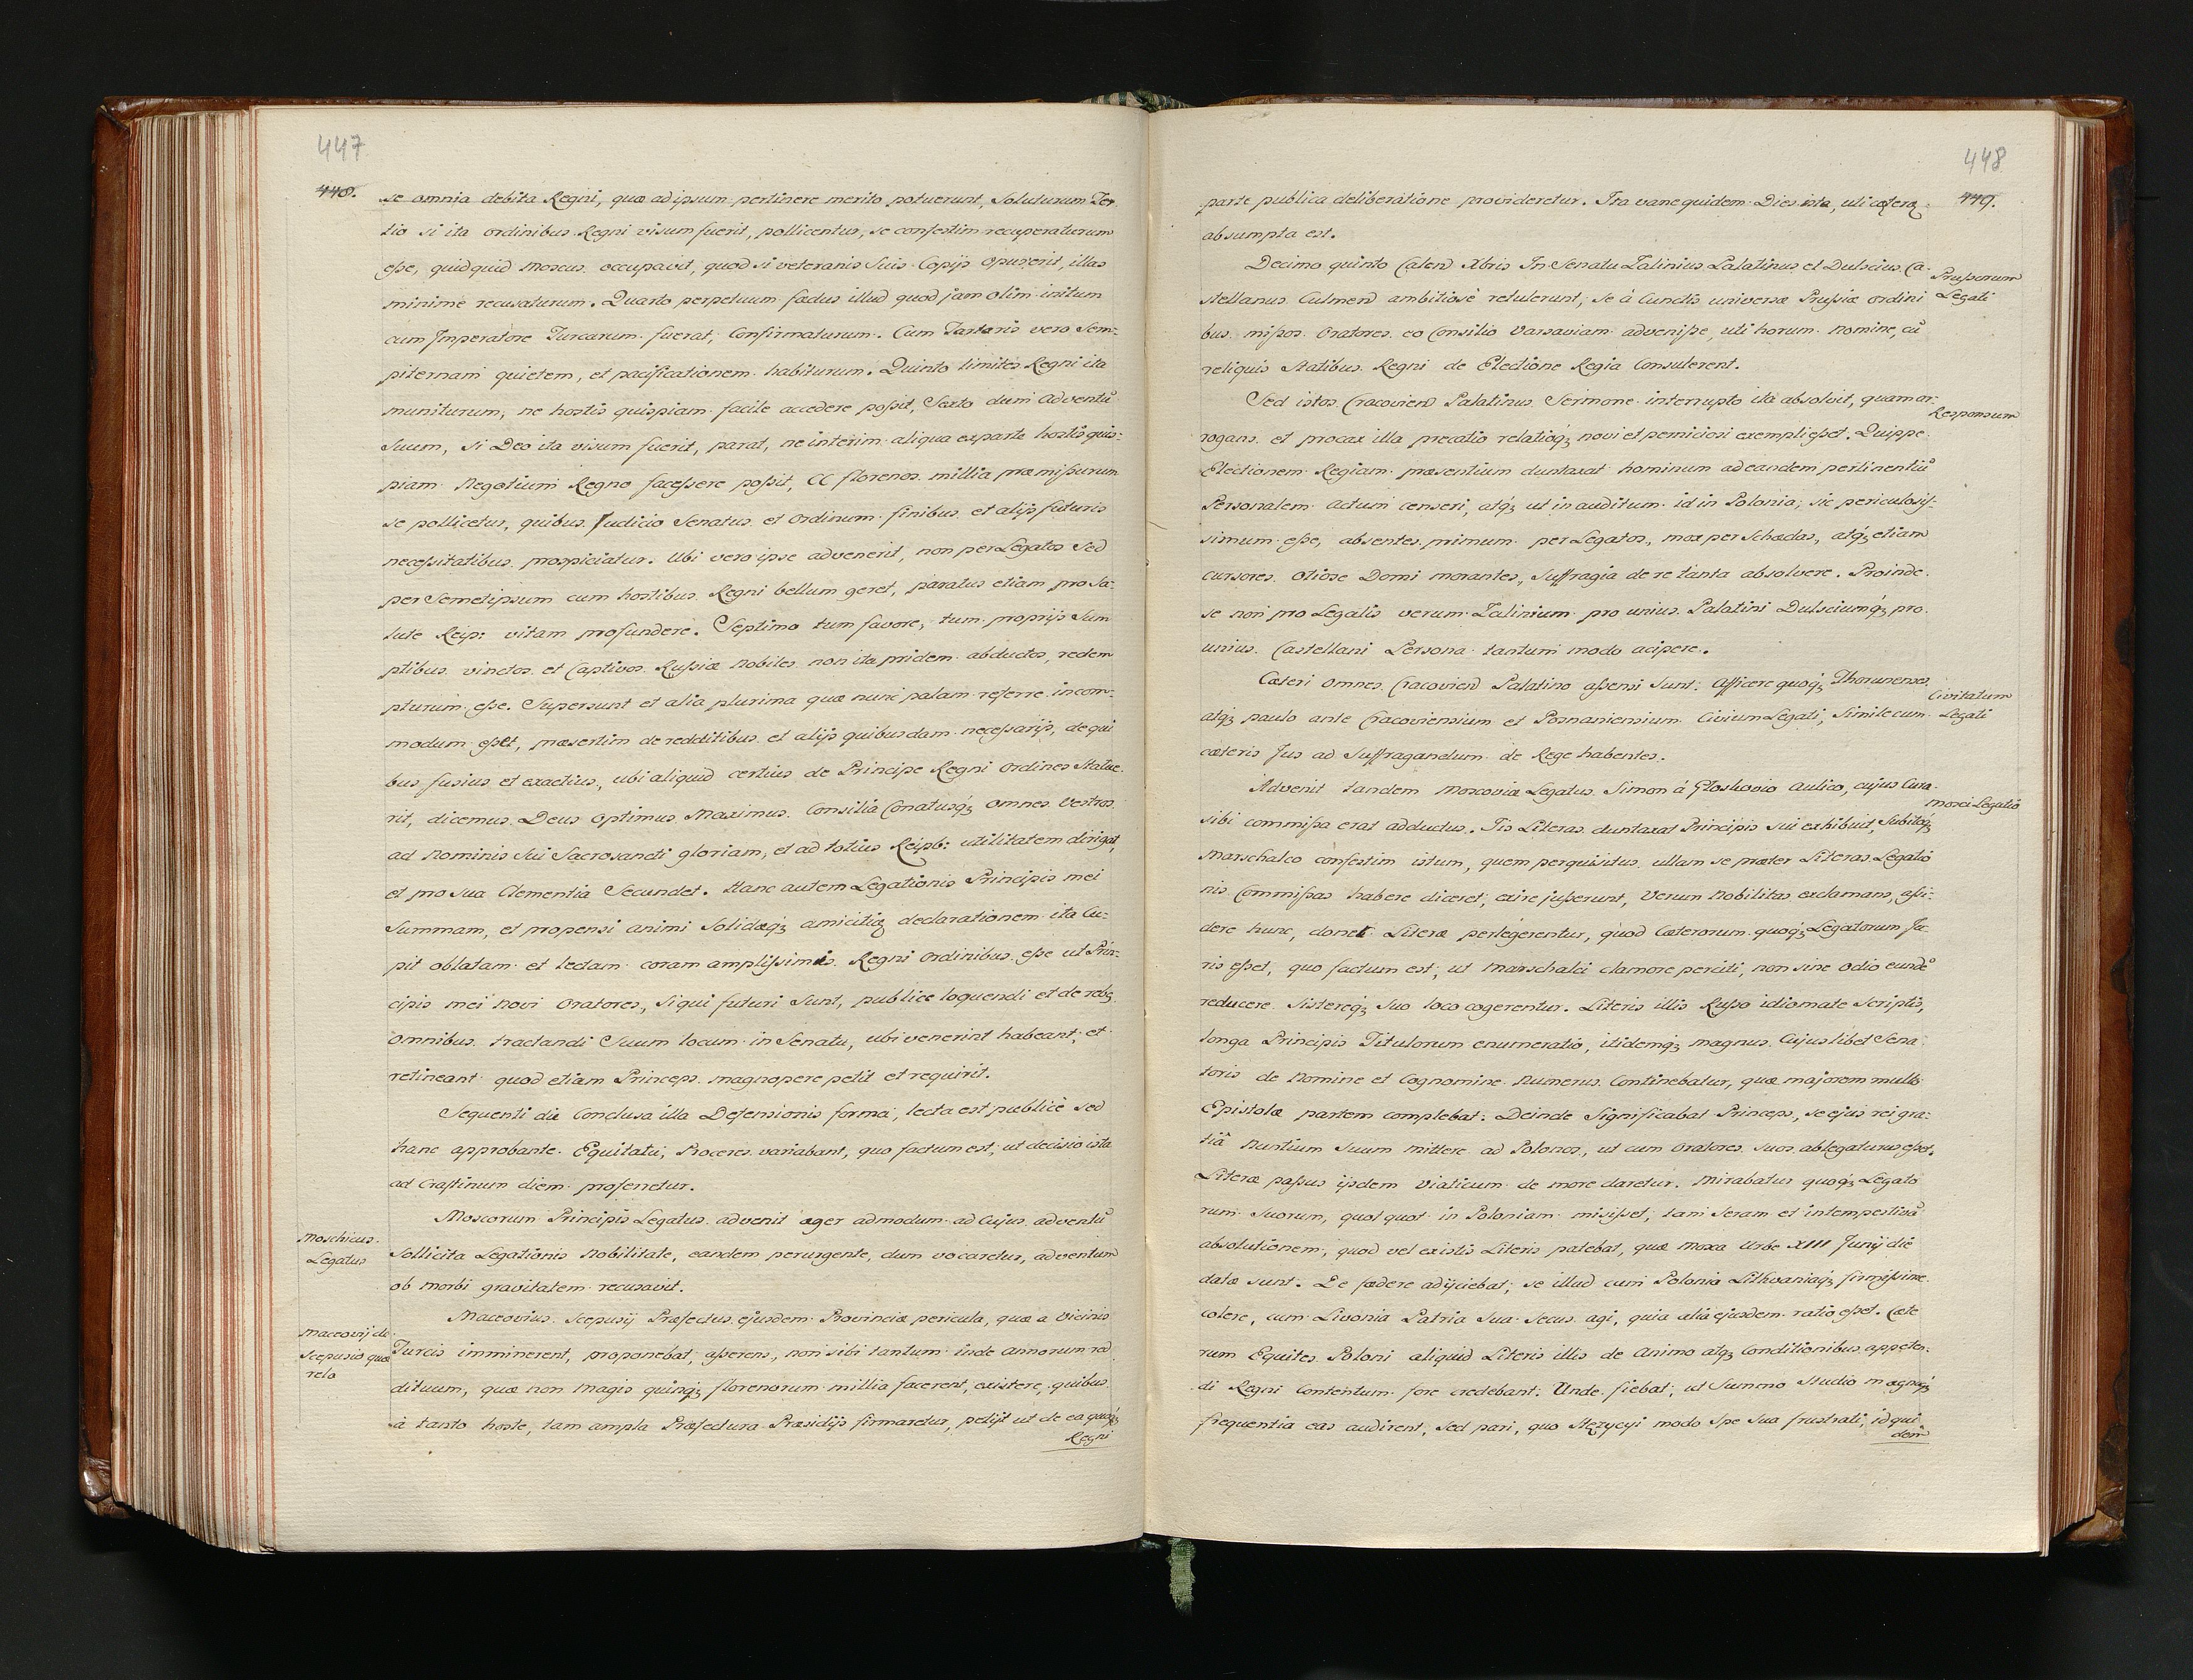 447
448.
se omnia debita Regni, quæ ad ipsum pertinere merito potuerunt, Soluturum Ter
tio si ita ordinibus Regni visum fuerit, pollicentur, se confestim recuperaturum
eße, quidquid Moscus occupavit, quod si veteranis Suis Copijs opus erit, illas
minime recusaturum. Quarto perpetuum fœdus illud quod jam olim initum
cum Imperatore Turcarum fuerat, Confirmaturum. Cum Tartaris vero Sem-
piternam quietem, et pacificationem habiturum. Quinto limites Regni ita
muniturum, ne hostis quispiam facile accedere poßit, Sexto dum adventũ
Suum, si Deo ita visum fuerit, parat, ne interim aliqua ex parte hostis quis-
piam Negotium Regno faceßere poßit, CC florenos millia præmißurum
se pollicetur, quibus Judicio Senatus et Ordinum finibus et alijs futuris
neceßitatibus prospiciatur. Ubi vero ipse advenerit, non per Legatos Sed
per Semetipsum cum hostibus Regni bellum geret, paratus etiam pro Sa-
lute Reip: vitam profundere. Septimo tum favore, tum proprijs Sum
ptibus vinctos et Captivos Rußiæ Nobiles non ita pridem abductos, redem
pturum eße. Supersunt et alia plurima quæ nunc palam referre incom-
modum eßet, præsertim de redditibus et alijs quibusdam neceßarijs, de qui
bus fusius et exactius, ubi aliquid certius de Principe Regni Ordines Statue-
rit, dicemus. Deus Optimus Maximus Consilia Conatusq́ꝫ omnes Vestros
ad Nominis Sui Sacrosancti gloriam, et ad totius Reipb: utilitatem dirigat,
et pro Sua Clementia Secundet. Hanc autem Legationis Principis mei
Summam, et propensi animi Solidæq́ꝫ amicitiæ declarationem ita Cu-
pit oblatam et lectam coram amplißimis Regni Ordinibus eße ut Prin-
cipis mei novi Oratores, Si qui futuri Sunt, publice loquendi et de rebꝫ
omnibus tractandi Suum locum in Senatu, ubi venerint habeant, et
retineant quod etiam Princeps magnopere petit et requirit.
Sequenti die Conclusa illa Defensionis forma, lecta est publicè sed
hanc approbante Equitatu, Proceres variabant, quo factum est, ut decisio ista
ad Crastinum diem proferretur.
Moscorum Principis Legatus advenit æger admodum ad Cujus adventũ
Moschicus
Legatus
Sollicita Legationis Nobilitate, eandem perurgente, dum vocaretur, adventum
ob morbi gravitatem recusavit.
Maceovius Scepusij Præfectus ejusdem Provinciæ pericula, quæ a Vicinis
Maceovij de
Scepusio quæ
rela
Turcis imminerent, proponebat, aßerens, non sibi tantum inde annorum re
dituum, quæ non magis quinq́ꝫ florenorum millia facerent, existere, quibus
à tanto hoste, tam ampla Præfectura Præsidijs firmaretur, petijt ut de ea quoq́ꝫ
Regni
448
449.
parte publica deliberatione provideretur. Ita vane quidem Dies ista, uti cæteræ
absumpta est.
Decimo quinto Calend Xbris In Senatu Zalinius Palatinus et Dulscius Ca-
Prußorum
Legati
stellanus Culmend ambitiosè retulerunt, Se à Cunctis universæ Prußiæ ordini
bus mißos Oratores eo Consilio Varsaviam adveniße, uti horum Nomine, cũ
reliquis Statibus Regni de Electione Regia Consulerent.
Sed istos Cracoviend Palatinus Sermone interrupto ita absolvit, quam ar-
Responsum
rogans et procax illa precatio relatioq́ꝫ novi et perniciosi exempli eßet. Quippe
Electionem Regiam præsentium duntaxat hominum ad eandem pertinentiũ
Personalem actum censeri, atq́ꝫ ut inauditum id in Polonia, sic periculosis-
simum eße, absentes primum per Legatos, mox per Schædas, atq́ꝫ etiam
cursores Otiose Domi morantes, Suffragia de re tanta absolvere. Proinde
se non pro Legatis verum Zalinium pro unius Palatini Dulsciumq́ꝫ pro
unius Castellani Persona tantum modo acipere.
Cæteri omnes Cracoviend Palatino aßensi Sunt. Affuere quoq́ꝫ Thorunenses
Civitatum
Legati
atq́ꝫ paulo ante Cracoviensium et Posnaniensium Civium Legati, Simile cum
cæteris Jus ad Suffragandum de Rege habentes.
Advenit tandem Moscoviæ Legatus Simon à Gloskovio Aulico, cujus Cura
Mosci Legatio
sibi commißa erat adductus. Is Literas duntaxat Principis sui exhibuit, Subitoq́ꝫ
Marschalco confestim istum, quem perquisitus ullam se præter Literas Legatio
nis Commißas habere diceret, exire jußerunt, Verum Nobilitas exclamans, aßi-
dere hunc, donec Literæ perlegerentur, quod Cæterorum quoq́ꝫ Legatorum Ju-
ris eßet, quo factum est, ut Marschalci clamore perciti, non sine odio eundẽ
reducere Sistereq́ꝫ Suo loco cogerentur. Literis illis Rußo idiomate Scriptis,
longa Principis Titulorum enumeratio, itidemq́ꝫ magnus Cujuslibet Sena-
toris de Nomine et Cognomine Numerus Continebatur, quæ majorem multo
Epistolæ partem complebat. Deinde Significabat Princeps, se ejus rei gra-
tiã Nuntium Suum mittere ad Polonos, ut cum Oratores suos ablegaturus eßet,
Literæ paßus ijsdem Viaticum de more daretur. Mirabatur quoq́ꝫ Legato
rum Suorum, quotquot in Poloniam misißet, tam Seram et intempestivã
absolutionem, quod vel ex istis Literis patebat, quæ Moxa Urbe XIII Junij die
datæ sunt. De fœdere adijciebat, se illud cum Polonia Lithvaniaq́ꝫ firmißime
colere, cum Livonia Patria Sua Secus agi, quia alia ejusdem ratio eßet. Cæte
rum Equites Poloni aliquid Literis illis de Animo atq́ꝫ Conditionibus appeten-
di Regni Contentum fore credebant. Unde fiebat, ut Summo Studio magnaq́ꝫ
frequentia eas audirent, Sed pari, quo Stezycyi modo Spe Sua frustrati, id qui
dem